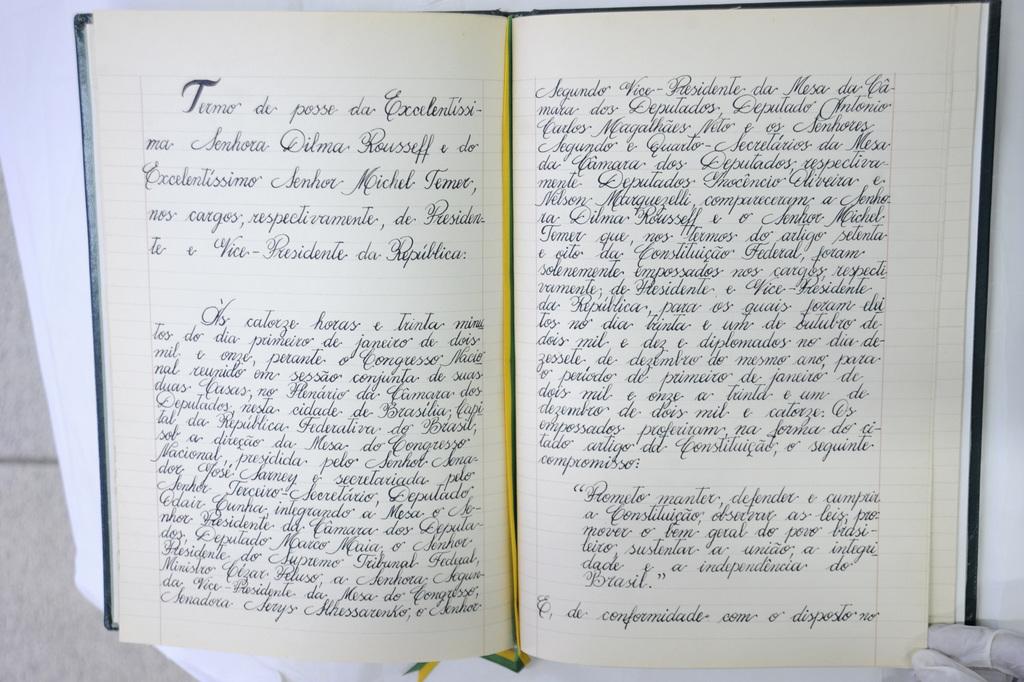 Termo de posse da Excelentíssi-
ma Senhora Dilma Rousseff e do
Excelentíssimo Senhor Michel Temer,
nos cargos, respectivamente, de Presiden-
te e Vice-Presidente da República:
Às catorze horas e trinta minu
tos do dia primeiro de janeiro de dois
mil e onze, perante o Congresso Nacio
nal reunido em sessão conjunta de suas
duas Casas, no Plenário da Câmara dos
Deputados, nesta cidade de Brasília, Capi
tal da República Federativa do Brasil,
sob a direção da Mesa do Congresso
Nacional, presidida pelo Senhor Sena-
dor José Sarney e secretariada pelo
Senhor Terceiro-Secretário, Deputado
Odair Cunha, integrando a Mesa o Se-
nhor Presidente da Câmara dos Deputa-
dos, Deputado Marco Maia, o Senhor
Presidente do Supremo Tribunal Federal,
Ministro Cezar Peluso, a Senhora Segun-
da Vice-Presidente da Mesa do Congresso,
Senadora Serys Slhessarenko, o Senhor
Segundo Vice-Presidente da Mesa da Câ-
mara dos Deputados, Deputado Antonio
Carlos Magalhães Neto e os Senhores
Segundo e Quarto-Secretários da Mesa
da Câmara dos Deputados, respectiva-
mente Deputados Inocêncio Oliveira e
Nelson Marquezelli, compareceram a Senho
ra Dilma Rousseff e o Senhor Michel
Temer que, nos termos do artigo setenta
e oito da Constituição Federal, foram
solenemente empossados nos cargos, respecti
vamente, de Presidente e Vice-Presidente
da República, para os quais foram elei
tos no dia trinta e um de outubro de
dois mil e dez e diplomados no dia de-
zessete de dezembro do mesmo ano, para
o período de primeiro de janeiro de
dois mil e onze a trinta e um de
dezembro de dois mil e catorze. Os
empossados proferiram, na forma do ci-
tado artigo da Constituição, o seguinte
compromisso:
"Prometo manter, defender e cumprir
a Constituição, observar as leis, pro-
mover o bem geral do povo brasi-
leiro, sustentar a união, a integri
dade e a independência do
Brasil."
E, de conformidade com o disposto no